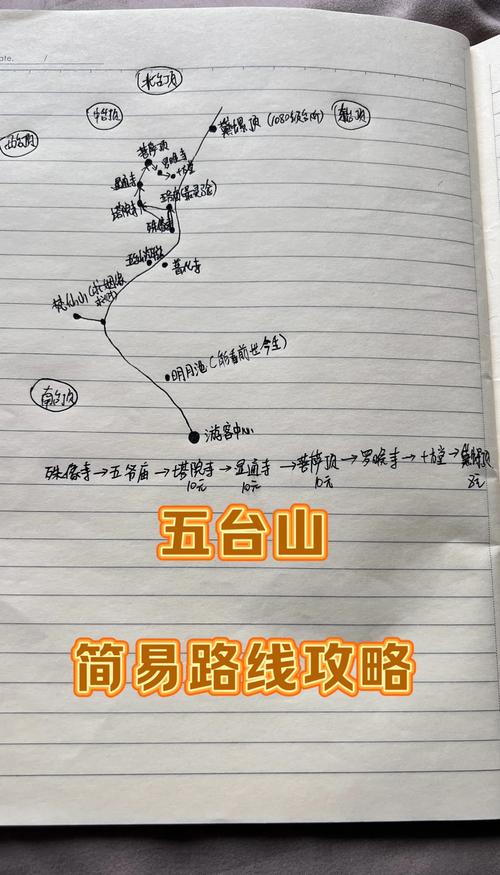 ate. /
北台顶
中台顶
西台顶
黛螺顶 (1080级台阶)
菩萨顶
罗睺寺
十方堂
显通寺
塔院寺
五爷庙(最灵验)
殊像寺
普化寺
梵仙山(求姻缘
明月池(能看前世今生)
南台顶
游客中心
殊像寺→五爷庙→塔院寺→显通寺→菩萨顶→罗睺寺→十方堂→黛螺顶
10元 10元 10元
五台山
简易路线攻略